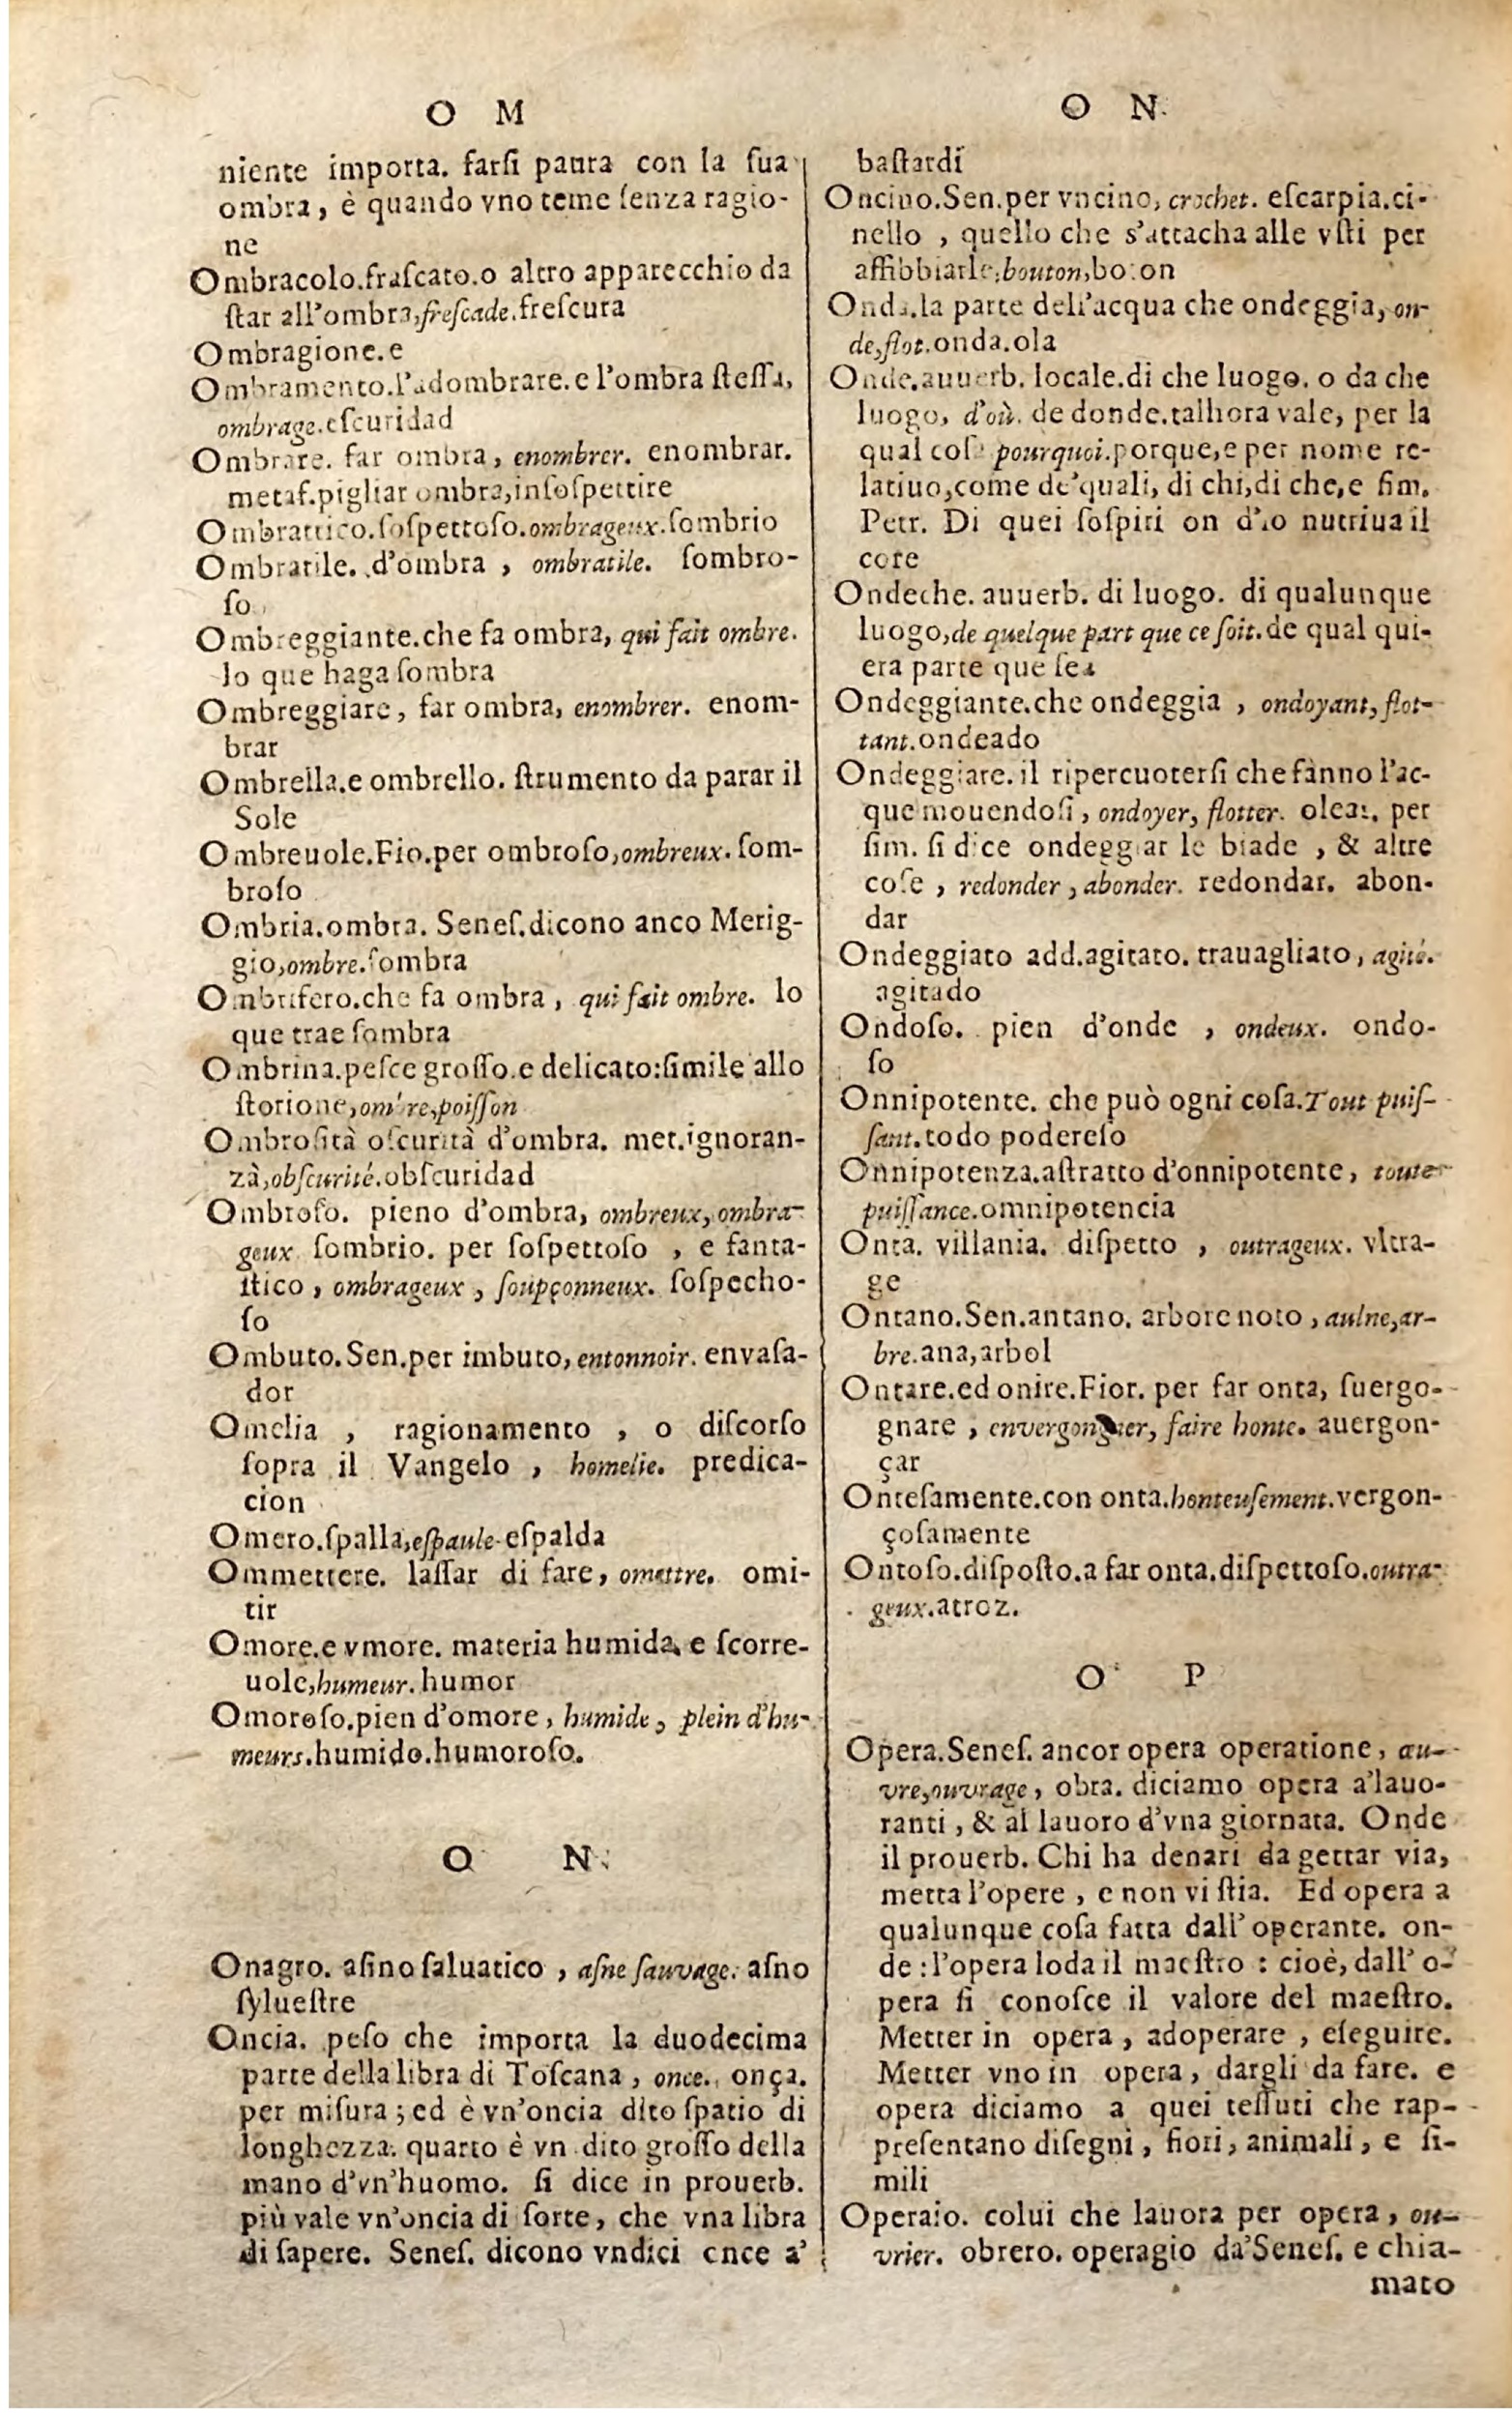 O M
niente importa. farſi paura con la ſua
ombra, è quando vno teme ſenza ragio-
ne
Ombracolo.fraſcato.o altro apparecchio da
ſtar all'ombra,freſcade.freſcura
Ombragione.e
Ombramento.l'adombrare.e l'ombra ſteſſa,
ombrage.eſcuridad
Ombrare. far ombra, enombrer. enombrar.
metaf.pigliar ombra,inſoſpettire
Ombrattico.ſoſpettoſo.ombrageux.ſombrio
Ombratile. d'ombra, ombratile. ſombro-
ſo
Ombreggiante.che fa ombra, qui fait ombre.
lo que haga ſombra
Ombreggiare, far ombra, enombrer. enom-
brar
Ombrella.e ombrello. ſtrumento da parar il
Sole
Ombreuole.Fio.per ombroſo,ombreux. ſom-
broſo
Ombria.ombra. Seneſ.dicono anco Merig-
gio,ombre.ſombra
Ombrifero.che fa ombra, qui fait ombre. lo
que trae ſombra
Ombrina.peſce groſſo.e delicato:ſimile allo
ſtorione,ombre,poiſſon
Ombroſità oſcurità d'ombra. met.ignoran-
zà,obſcurité.obſcuridad
Ombroſo. pieno d'ombra, ombreux, ombra-
geux ſombrio. per ſoſpettoſo, e fanta-
ſtico, ombrageux, ſoupçonneux. ſoſpecho-
ſo
Ombuto.Sen.per imbuto, entonnoir. envaſa-
dor
Omelia, ragionamento, o diſcorſo
ſopra il Vangelo, homelie. predica-
cion
Omero.ſpalla,eſpaule.eſpalda
Ommettere. laſſar di fare, omettre. omi-
tir
Omore.e vmore. materia humida e ſcorre-
uole,humeur.humor
Omoroſo.pien d'omore, humide, plein d'hu-
meurs.humido.humoroſo.
O N
Onagro. aſino ſaluatico, aſne ſauvage. aſno
ſylueſtre
Oncia. peſo che importa la duodecima
parte della libra di Toſcana, once. onça.
per miſura; ed è vn'oncia dito ſpatio di
longhezza. quarto è vn dito groſſo della
mano d'vn'huomo. ſi dice in prouerb.
più vale vn'oncia di ſorte, che vna libra
di ſapere. Seneſ. dicono vndici once a'
O N
baſtardi
Oncino.Sen.per vncino, crochet. eſcarpia.ci-
nello, quello che s'attacha alle vſti per
affibbiarle,bouton,boton
Onda.la parte dell'acqua che ondeggia, on-
de,flot.onda.ola
Onde.auuerb. locale.di che luogo. o da che
luogo, d'où. de donde.talhora vale, per la
qual coſa pourquoi.porque,e per nome re-
latiuo,come de'quali, di chi,di che,e ſim.
Petr. Di quei ſoſpiri on d'io nutriua il
core
Ondeche. auuerb. di luogo. di qualunque
luogo,de quelque part que ce ſoit.de qual qui-
era parte que ſea
Ondeggiante.che ondeggia, ondoyant, flot-
tant.ondeado
Ondeggiare. il ripercuoterſi che fanno l'ac-
que mouendoſi, ondoyer, flotter. olear. per
ſim. ſi dice ondeggiar le biade, & altre
coſe, redonder, abonder. redondar. abon-
dar
Ondeggiato add.agitato. trauagliato, agité.
agitado
Ondoſo. pien d'onde, ondeux. ondo-
ſo
Onnipotente. che può ogni coſa.Tout puiſ-
ſant.todo podereſo
Onnipotenza.aſtratto d'onnipotente, toute
puiſſance.omnipotencia
Onta. villania. diſpetto, outrageux. vltra-
ge
Ontano.Sen.antano. arbore noto, aulne,ar-
bre.ana,arbol
Ontare.ed onire.Fior. per far onta, ſuergo-
gnare, envergongner, faire honte. auergon-
çar
Onteſamente.con onta.honteuſement.vergon-
çoſamente
Ontoſo.diſpoſto.a far onta.diſpettoſo.outra-
geux.atroz.
O P
Opera.Seneſ. ancor opera operatione, œu-
vre,ouvrage, obra. diciamo opera a'lauo-
ranti, & al lauoro d'vna giornata. Onde
il prouerb. Chi ha denari da gettar via,
metta l'opere, e non vi ſtia. Ed opera a
qualunque coſa fatta dall'operante. on-
de:l'opera loda il maeſtro: cioè, dall'o-
pera ſi conoſce il valore del maeſtro.
Metter in opera, adoperare, eſeguire.
Metter vno in opera, dargli da fare. e
opera diciamo a quei teſſuti che rap-
preſentano diſegni, fiori, animali, e ſi-
mili
Operaio. colui che lauora per opera, ou-
vrier. obrero. operagio da'Seneſ. e chia-
mato